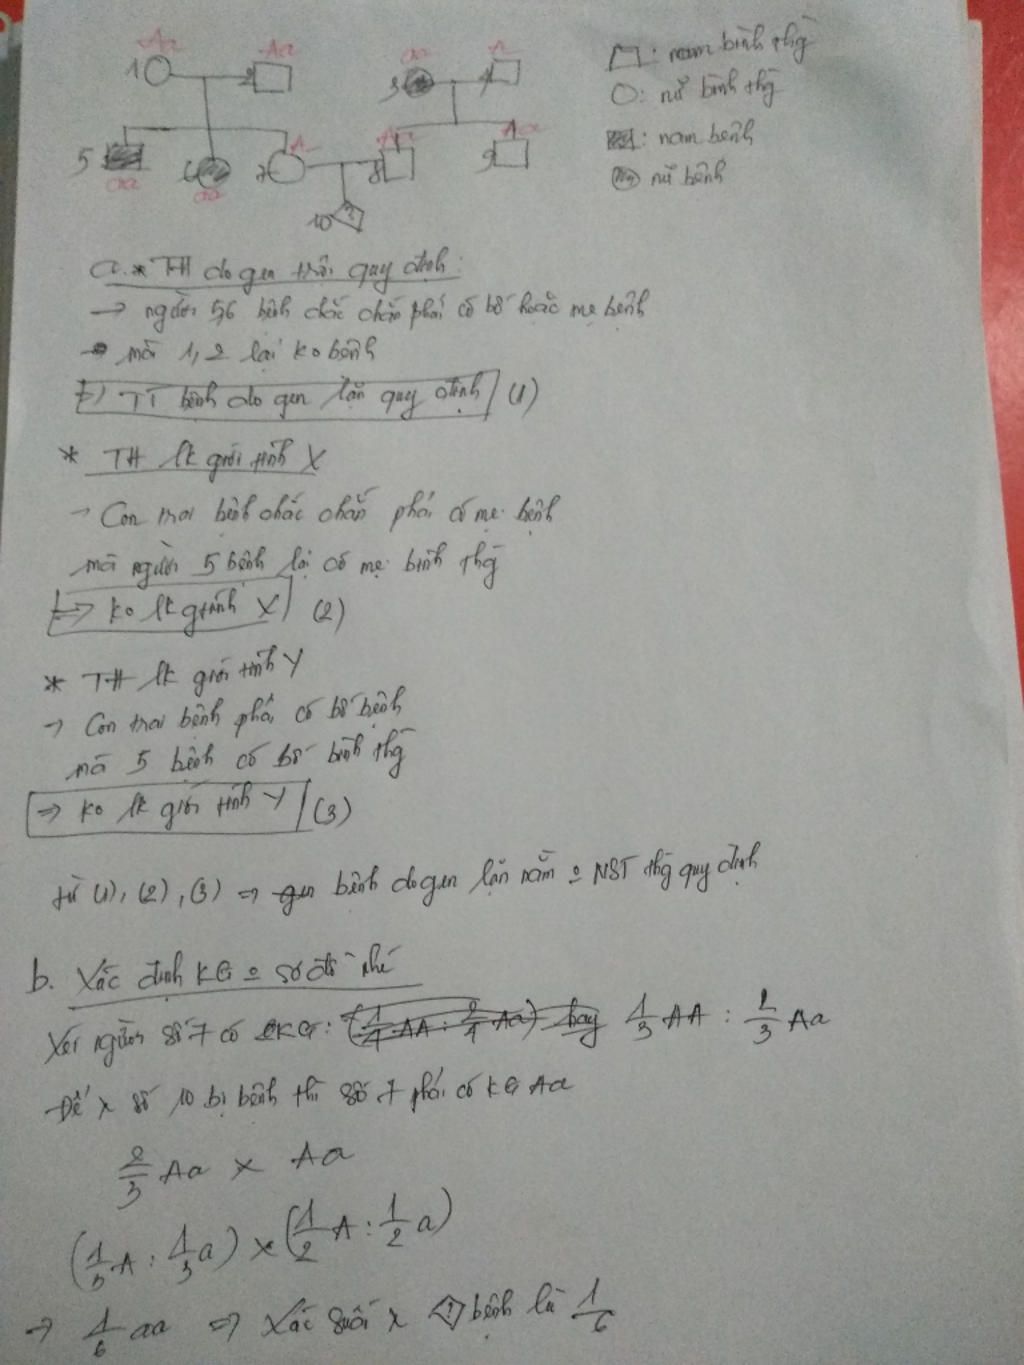 Aa Aa aa A-
1 2 3 4
: nam bình thg
: nữ bình thg
: nam bệnh
: nữ bệnh
A- Aa Aa
5 6 7 8 9
aa aa
10 ?
a. * TH do gen trội quy định:
→ người 5,6 bệnh chắc chắn phải có bố hoặc mẹ bệnh
→ mà 1, 2 lại ko bệnh
=) TT bệnh do gen lặn quy định (1)
* TH lk giới tính X
→ Con trai bệnh chắc chắn phải có mẹ bệnh
mà người 5 bệnh lại có mẹ bình thg
=> ko lk gtính X (2)
* TH lk giới tính Y
→ Con trai bệnh phải có bố bệnh
mà 5 bệnh có bố bình thg
=> ko lk giới tính Y (3)
từ (1), (2), (3) => bệnh do gen lặn nằm NST thg quy định
b. Xác định KG sơ đồ nhé
Xét người số 7 có KG: (1/4 AA : 2/4 Aa) hay 1/3 AA : 2/3 Aa
Để x số 10 bị bệnh thì số 7 phải có KG Aa
2/3 Aa x Aa
(1/3 A : 1/3 a) x (1/2 A : 1/2 a)
→ 1/6 aa => Xác suất x ? bệnh là 1/6